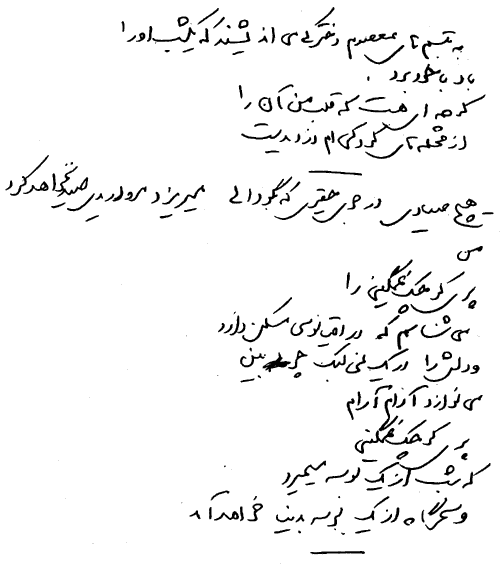 به تبسم های معصوم دخترکی می اندیشند که یکشب او را
باد با خود برد .
کوچه ای هست که قلب من آن را
از محله های کودکی ام دزدیدست
هیچ صیادی در جوی حقیری که بگودالی میریزد مرواریدی صید نخواهد کرد
من
پری کوچک غمگینی را
می شناسم که در اقیانوسی مسکن دارد
و دلش را در یک نی لبک چوبین
می نوازد آرام آرام
پری کوچک غمگینی
که شب از یک بوسه میمیرد
و سحرگاه از یک بوسه بدنیا خواهد آمد